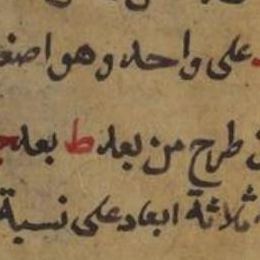 على واحد وهو اصغر
طرح من بعد ط بعد ج
ثلاثة ابعاد على نسبة